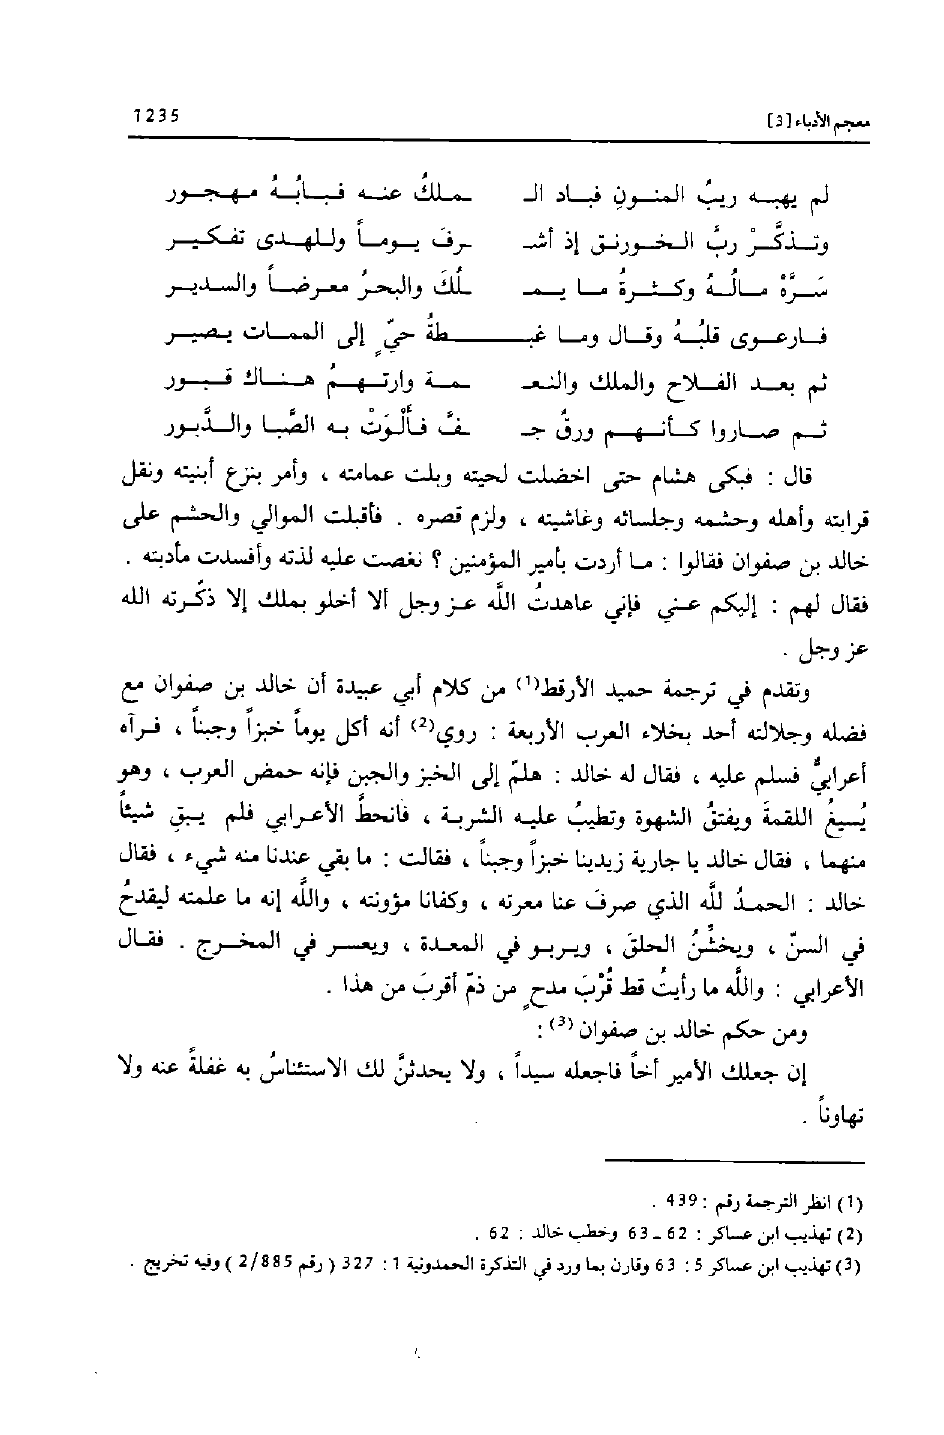 معجم الأدباء [3] 1235
لم يهبه ريبُ المنون فباد الـ ـملكُ عنه فبابُهُ مهجور
وتذكَّرْ ربُّ الخورنق إذ أشـ ـرفَ يوماً وللهدى تفكير
سَرَّهُ مالُهُ وكثرةُ ما يمـ ـلُكَ والبحرُ معرضاً والسدير
فارعوى قلبُهُ وقال وما غبـ ـطةُ حيٍّ إلى الممات يصير
ثم بعد الفلاح والملك والنعـ ـمة وارتهمُ هناك قبور
ثم صاروا كأنهم ورقٌ جـ ـفَّ فألْوَتْ به الصَّبا والدَّبور
قال : فبكى هشام حتى اخضلت لحيته وبلت عمامته ، وأمر بنزع أبنيته ونقل
قرابته وأهله وحشمه وجلسائه وغاشيته ، ولزم قصره . فأقبلت الموالي والحشم على
خالد بن صفوان فقالوا : ما أردت بأمير المؤمنين ؟ نغصت عليه لذته وأفسدت مأدبته .
فقال لهم : إليكم عني فإني عاهدتُ اللَّه عز وجل ألا أخلو بملك إلا ذكّرته الله
عز وجل .
وتقدم في ترجمة حميد الأرقط(1) من كلام أبي عبيدة أن خالد بن صفوان مع
فضله وجلالته أحد بخلاء العرب الأربعة : روي(2) أنه أكل يوماً خبزاً وجبناً ، فرآه
أعرابيٌّ فسلم عليه ، فقال له خالد : هلمّ إلى الخبز والجبن فإنه حمض العرب ، وهو
يُسيغُ اللقمةَ ويفتقُ الشهوة وتطيبُ عليه الشربة ، فانحطَّ الأعرابي فلم يبقِ شيئاً
منهما ، فقال خالد يا جارية زيدينا خبزاً وجبناً ، فقالت : ما بقي عندنا منه شيء ، فقال
خالد : الحمدُ للَّه الذي صرفَ عنا معرته ، وكفانا مؤونته ، واللَّه إنه ما علمته ليقدحُ
في السنّ ، ويخشّنُ الحلقَ ، ويربو في المعدة ، ويعسر في المخرج . فقال
الأعرابي : واللَّه ما رأيتُ قط قُرْبَ مدحٍ من ذمّ أقربَ من هذا .
ومن حكم خالد بن صفوان (3) :
إن جعلك الأمير أخاً فاجعله سيداً ، ولا يحدثنَّ لك الاستئناسُ به غفلةً عنه ولا
تهاوناً .
(1) انظر الترجمة رقم : 439 .
(2) تهذيب ابن عساكر : 62 ـ 63 وخطب خالد : 62 .
(3) تهذيب ابن عساكر 5 : 63 وقارن بما ورد في التذكرة الحمدونية 1 : 327 ( رقم 2/885 ) وفيه تخريج .